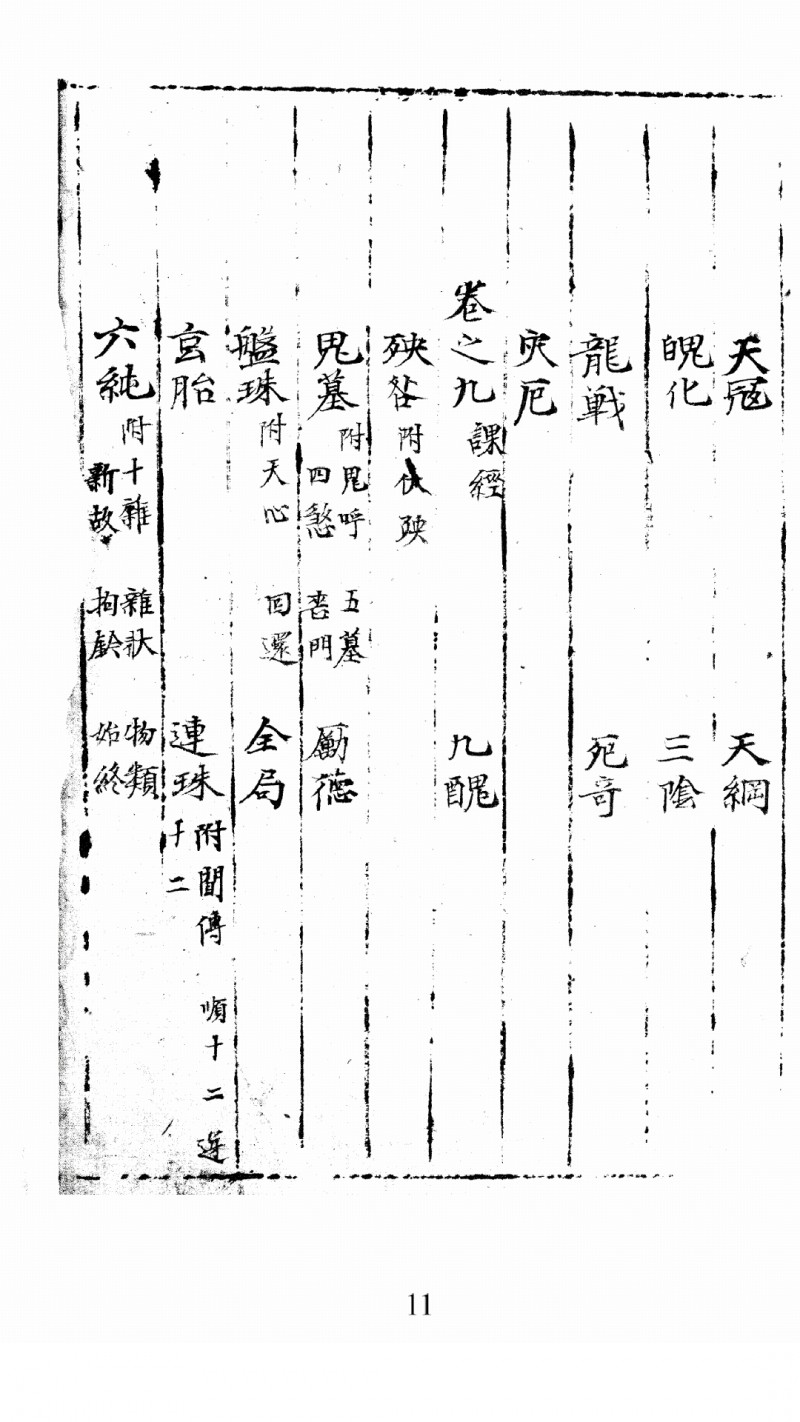 天冦 天綱
魄化 三陰
龍戰 死奇
灾厄
卷之九 課經 九醜
殃咎 附伏殃
鬼墓 附鬼呼 五墓 四煞 喪門 勵德
盤珠 附天心 回還 全局
玄胎 連珠 附間傳 順十二 逆十二
六純 附十雜 雜狀 物類 新故 拘鈐 始終
11